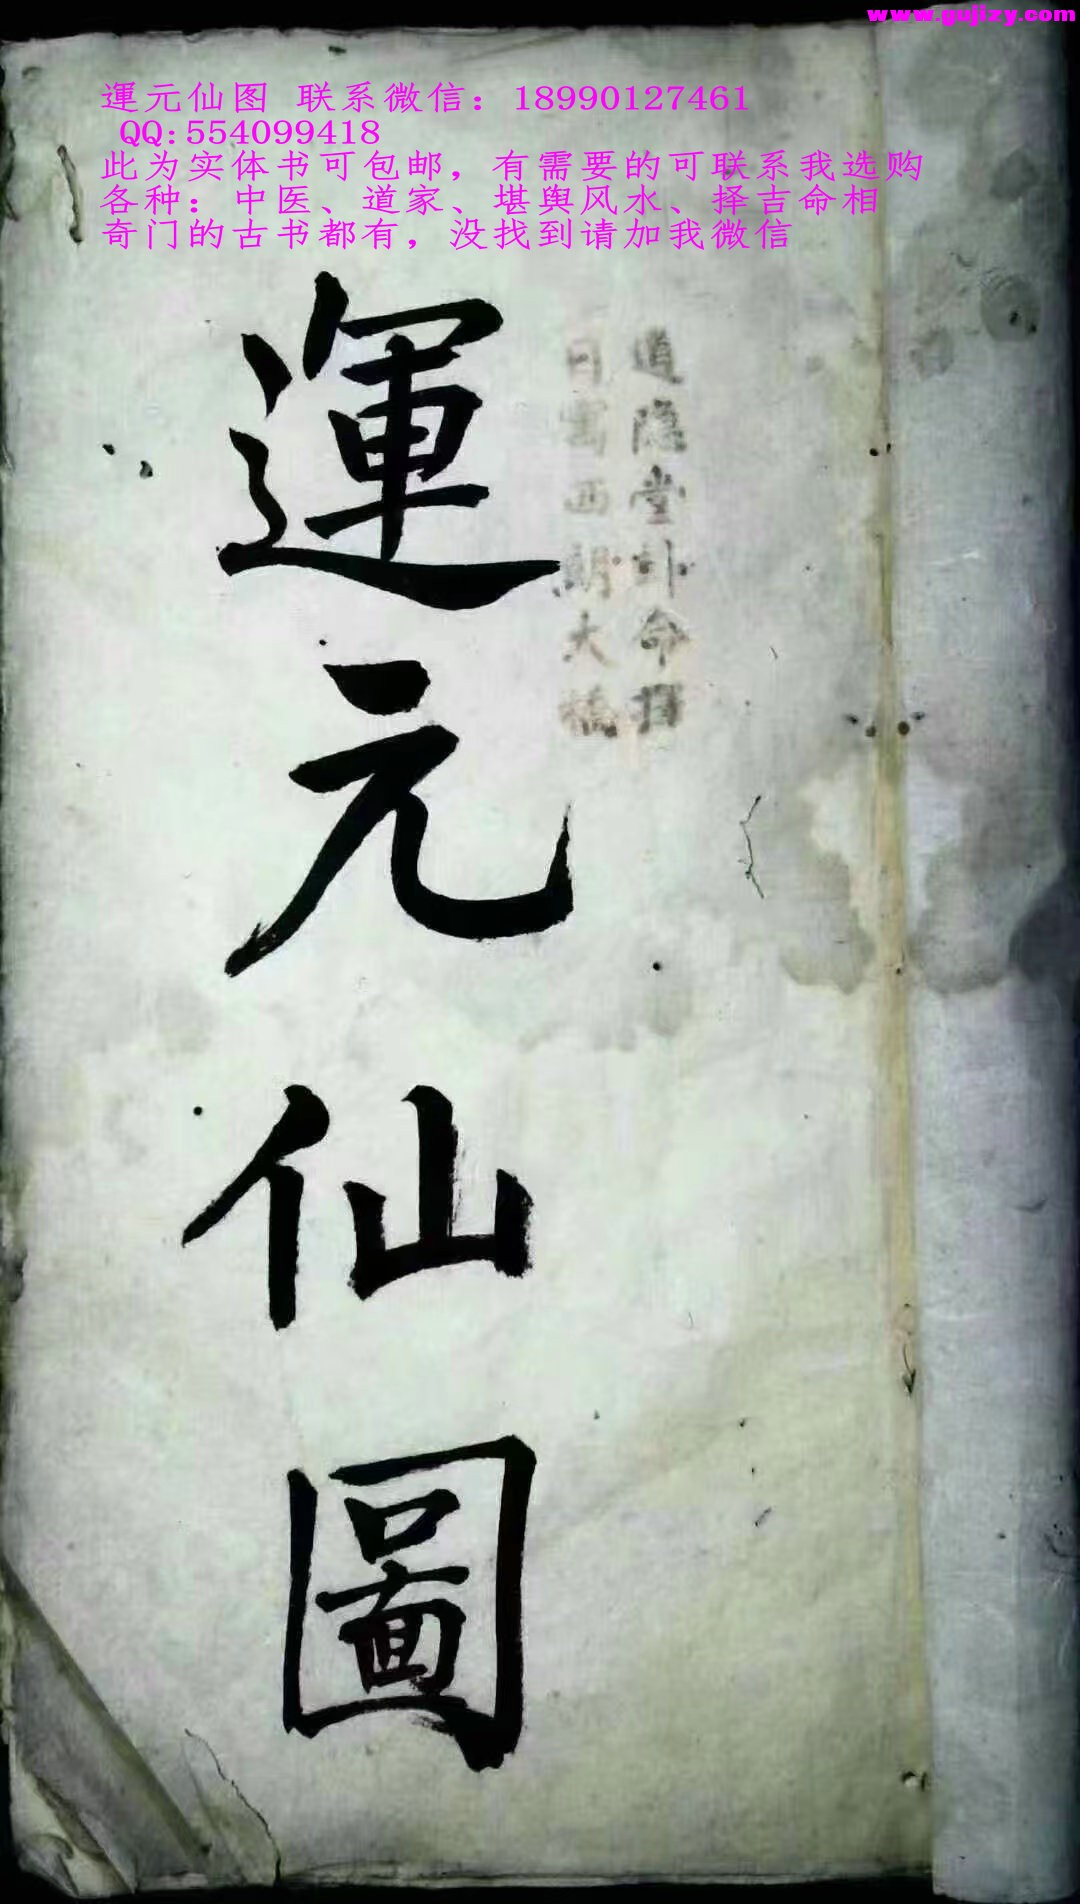 www.gujizy.com
運元仙图 联系微信：18990127461
QQ:554099418
此为实体书可包邮，有需要的可联系我选购
各种：中医、道家、堪舆风水、择吉命相
奇门的古书都有，没找到请加我微信
道隐堂卦命擇
日寓西關大橋
運元仙圖